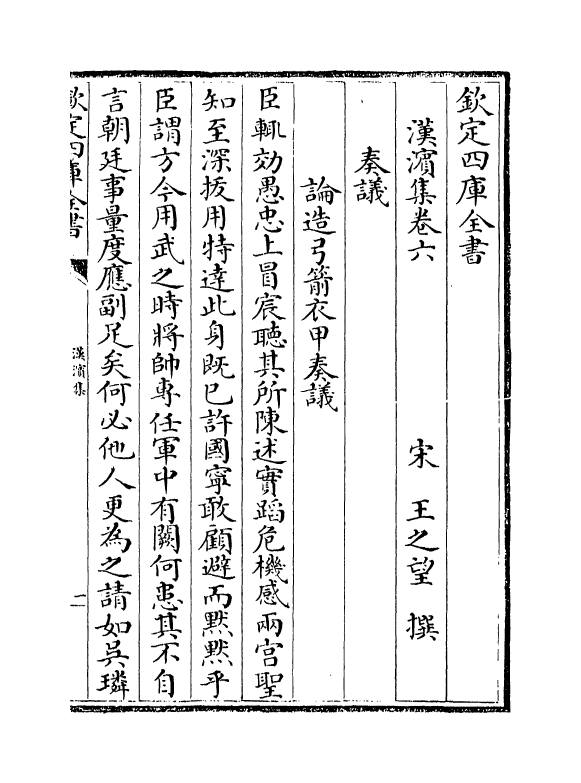 欽定四庫全書
漢濱集卷六
宋 王之望 撰
奏議
論造弓箭衣甲奏議
臣輒効愚忠上冒宸聽其所陳述實蹈危機感兩宫聖
知至深拔用特達此身既已許國寧敢顧避而黙黙乎
臣謂方今用武之時將帥專任軍中有闕何患其不自
言朝廷事量度應副足矣何必他人更為之請如吳璘
欽定四庫全書
漢濱集